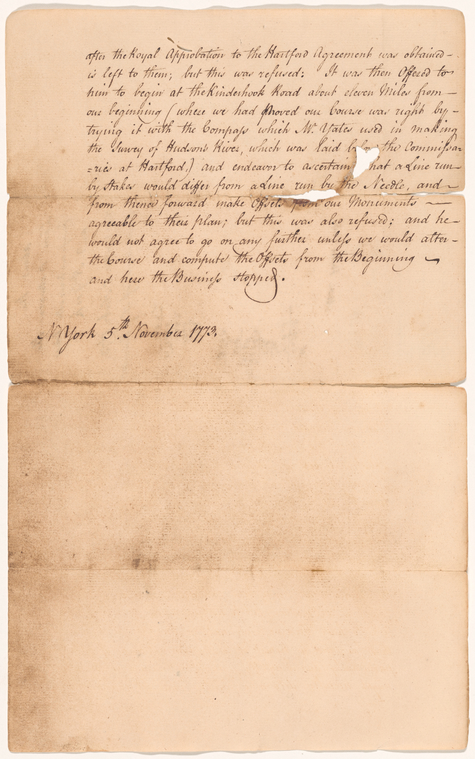 after the Royal Approbation to the Hartford Agreement was obtained
is left to them; but this was refused: It was then Offered to
him to begin at the Kinderhook Road about eleven Miles from
our beginning (where we had proved our Course was right by
trying it with the Compass which Mr. Yates used in making
the Survey of Hudsons River, which was laid the Commissa-
ries at Hartford,) and endeavor to ascertain hat a Line run
by Stakes would differ from a Line run by the Needle, and
from thence forward make Offsets from our Monuments
agreeable to their plan; but this was also refused; and he
would not agree to go on any further unless we would alter
the Course and compute the Offsets from the Beginning
and here the Business stopped.
N York 5th November 1773.